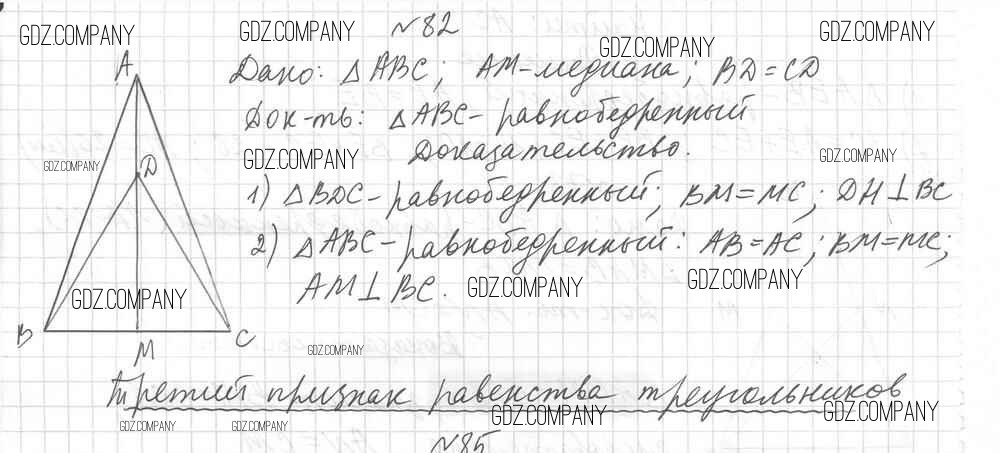 GDZ.COMPANY GDZ.COMPANY №82 GDZ.COMPANY GDZ.COMPANY
A
Дано: △ABC; AM-медиана; BD=CD
Док-ть: △ABC-равнобедренный
GDZ.COMPANY D GDZ.COMPANY Доказательство. GDZ.COMPANY
1) △BDC-равнобедренный; BM=MC; DH⊥BC
2) △ABC-равнобедренный: AB=AC; BM=MC;
GDZ.COMPANY AM⊥BC. GDZ.COMPANY GDZ.COMPANY
B C
M GDZ.COMPANY
Третий признак равенства треугольников
GDZ.COMPANY GDZ.COMPANY GDZ.COMPANY GDZ.COMPANY
№85